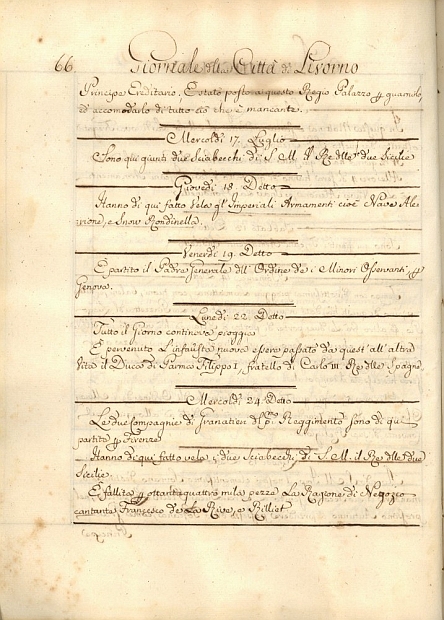 66 Giornale della Città di Livorno
Principe Ereditario. È stato posto a questo Regio Palazzo per guarnirlo,
ed accomodarlo di tutto ciò che è mancante.
Mercoldì 17. Luglio
Sono qui giunti due Sciabecchi di S. M. il Re delle due Sicilie
Giovedì 18 Detto
Hanno di qui fatto Vela gl'Imperiali Armamenti cioè Nave Ale
rione, e Snow Rondinella.
Venerdì 19. Detto
È partito il Padre Generale dell'Ordine de i Minori Osservanti per
Genova.
Lunedì 22. Detto
Tutto il Giorno continova pioggia
È pervenuto l'infausta nuova essere passato da quest'all'altra
Vita il Duca di Parma Filippo I, fratello di Carlo III Re delle Spagne.
Mercoldì 24. Detto
Le due Compagnie di Granatieri del Reggimento sono di qui
partite per Firenze
Hanno di qui fatto vela i due Sciabecchi di S. M. il Re delle due
Sicilie.
È fallita per ottantaquattro mila pezze La Ragione di Negozio
cantante Francesco de La Rive, e Rilliet